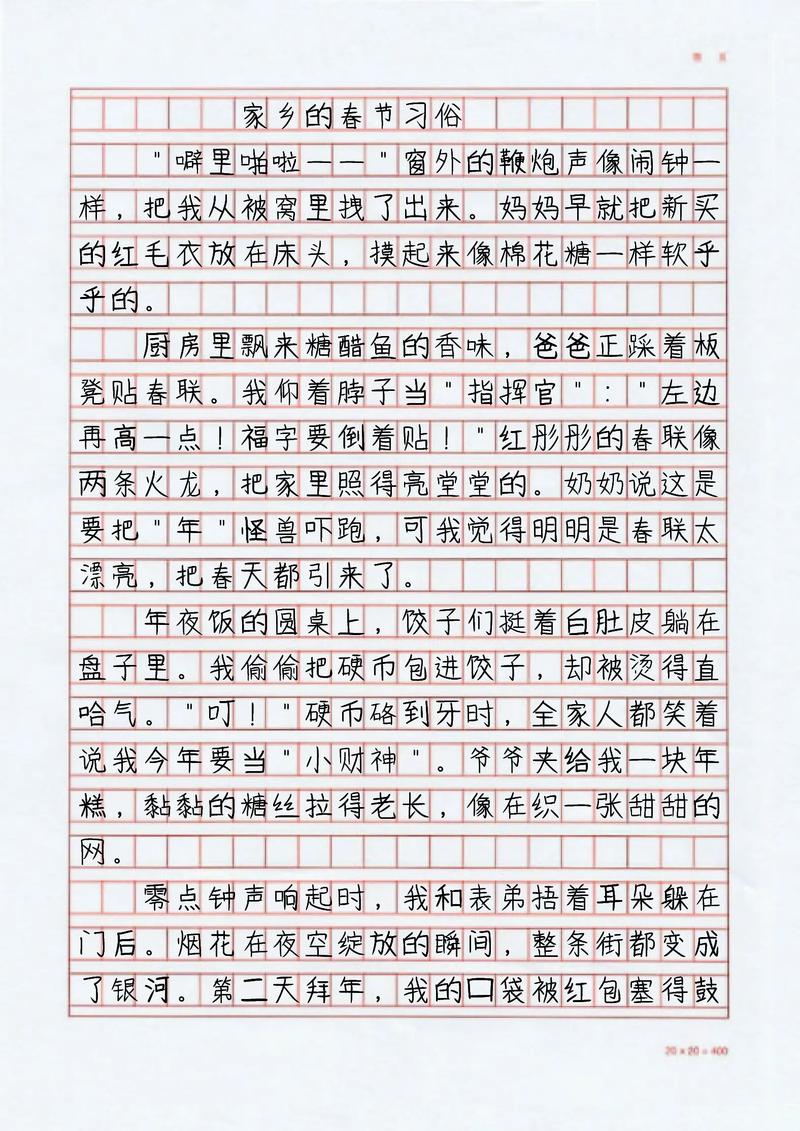 家乡的春节习俗
"噼里啪啦——"窗外的鞭炮声像闹钟一
样，把我从被窝里拽了出来。妈妈早就把新买
的红毛衣放在床头，摸起来像棉花糖一样软乎
乎的。
厨房里飘来糖醋鱼的香味，爸爸正踩着板
凳贴春联。我仰着脖子当"指挥官"："左边
再高一点！福字要倒着贴！"红彤彤的春联像
两条火龙，把家里照得亮堂堂的。奶奶说这是
要把"年"怪兽吓跑，可我觉得明明是春联太
漂亮，把春天都引来了。
年夜饭的圆桌上，饺子们挺着白肚皮躺在
盘子里。我偷偷把硬币包进饺子，却被烫得直
哈气。"叮！"硬币硌到牙时，全家人都笑着
说我今年要当"小财神"。爷爷夹给我一块年
糕，黏黏的糖丝拉得老长，像在织一张甜甜的
网。
零点钟声响起时，我和表弟捂着耳朵躲在
门后。烟花在夜空绽放的瞬间，整条街都变成
了银河。第二天拜年，我的口袋被红包塞得鼓
20×20=400